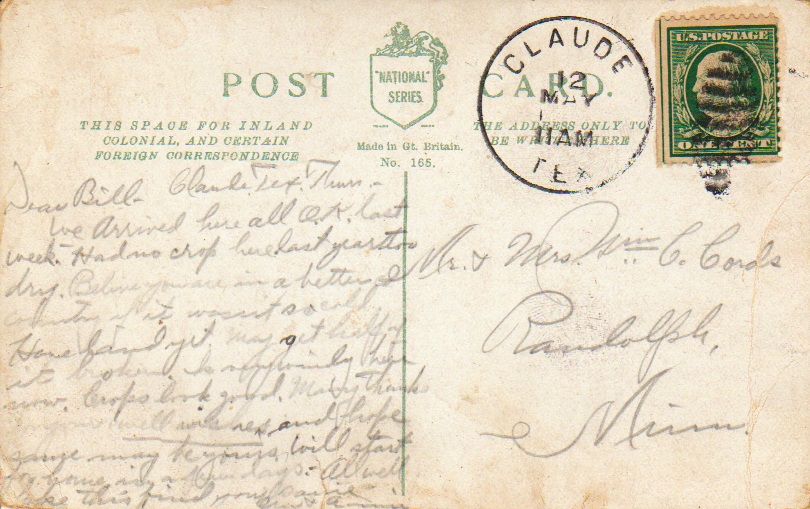 POST CARD.
"NATIONAL"
SERIES.
THIS SPACE FOR INLAND
COLONIAL, AND CERTAIN
FOREIGN CORRESPONDENCE
Made in Gt. Britain.
No. 165.
THE ADDRESS ONLY TO
BE WRITTEN HERE
CLAUDE
12
MAY
11AM
TEX
U.S. POSTAGE
ONE CENT
Claude, Tex, Thurs.-
Dear Bill-
We arrived here all O.K. last
week. Had no crop here last year too
dry. Believe you are in a better
country if it wasn't so cold
Have land yet. may get half of
it broken. Is very windy here
now. Crops look good. Many thanks
for your well wishes, and hope
same may be yours, will start
for home in a few days. All well
hope this find you same
Mr. & Mrs. Wm. C. Cords
Randolph,
Minn.